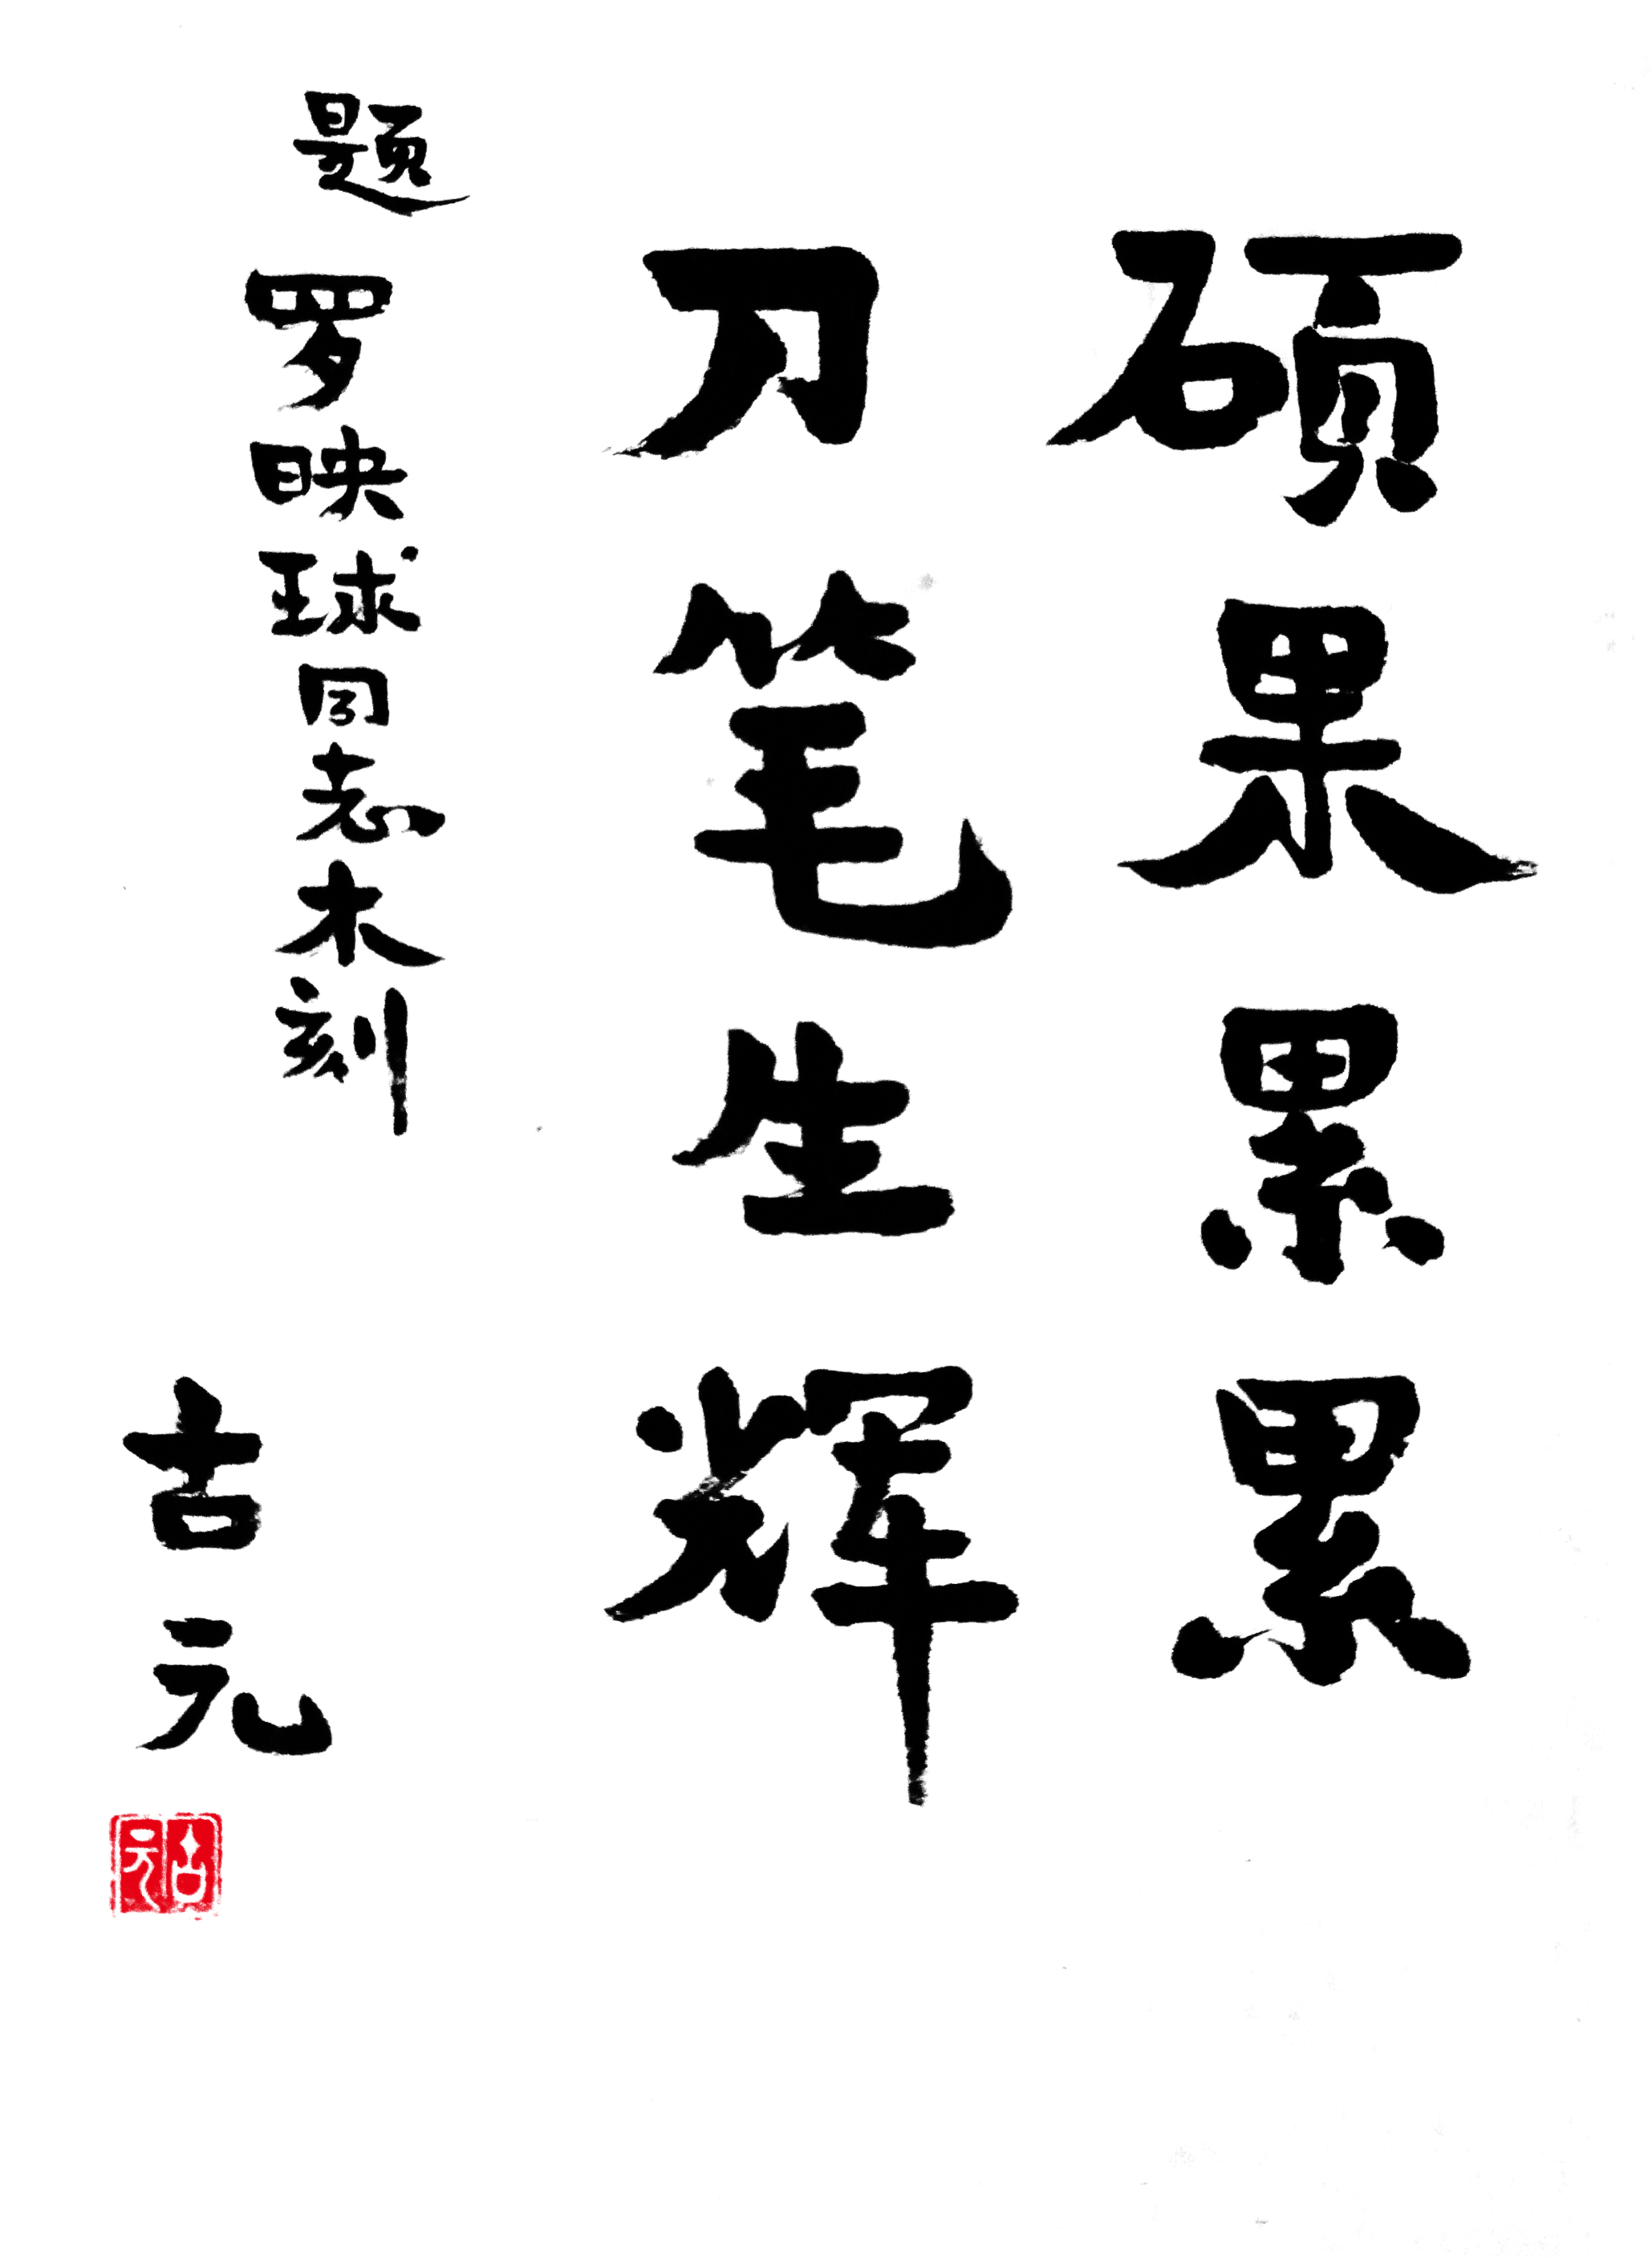 硕果累累
刀笔生辉
题罗映球同志木刻
古元
古元